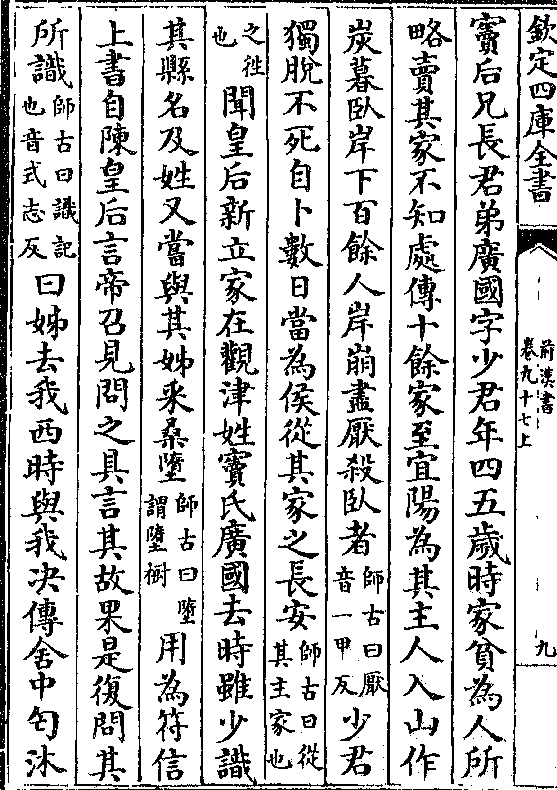 欽定四庫全書
前漢書
卷九十七上
九
竇后兄長君弟廣國字少君年四五歲時家貧為人所
略賣其家不知處傳十餘家至宜陽為其主人入山作
炭暮臥岸下百餘人岸崩盡厭殺臥者師古曰厭音一甲反少君
獨脫不死自卜數日當為侯從其家之長安師古曰從其主家也
之徃也聞皇后新立家在觀津姓竇氏廣國去時雖少識
其縣名及姓又當與其姊采桑墮師古曰墮謂墮樹用為符信
上書自陳皇后言帝召見問之具言其故果是復問其
所識師古曰識記也音式志反曰姊去我西時與我决傳舍中匄沐